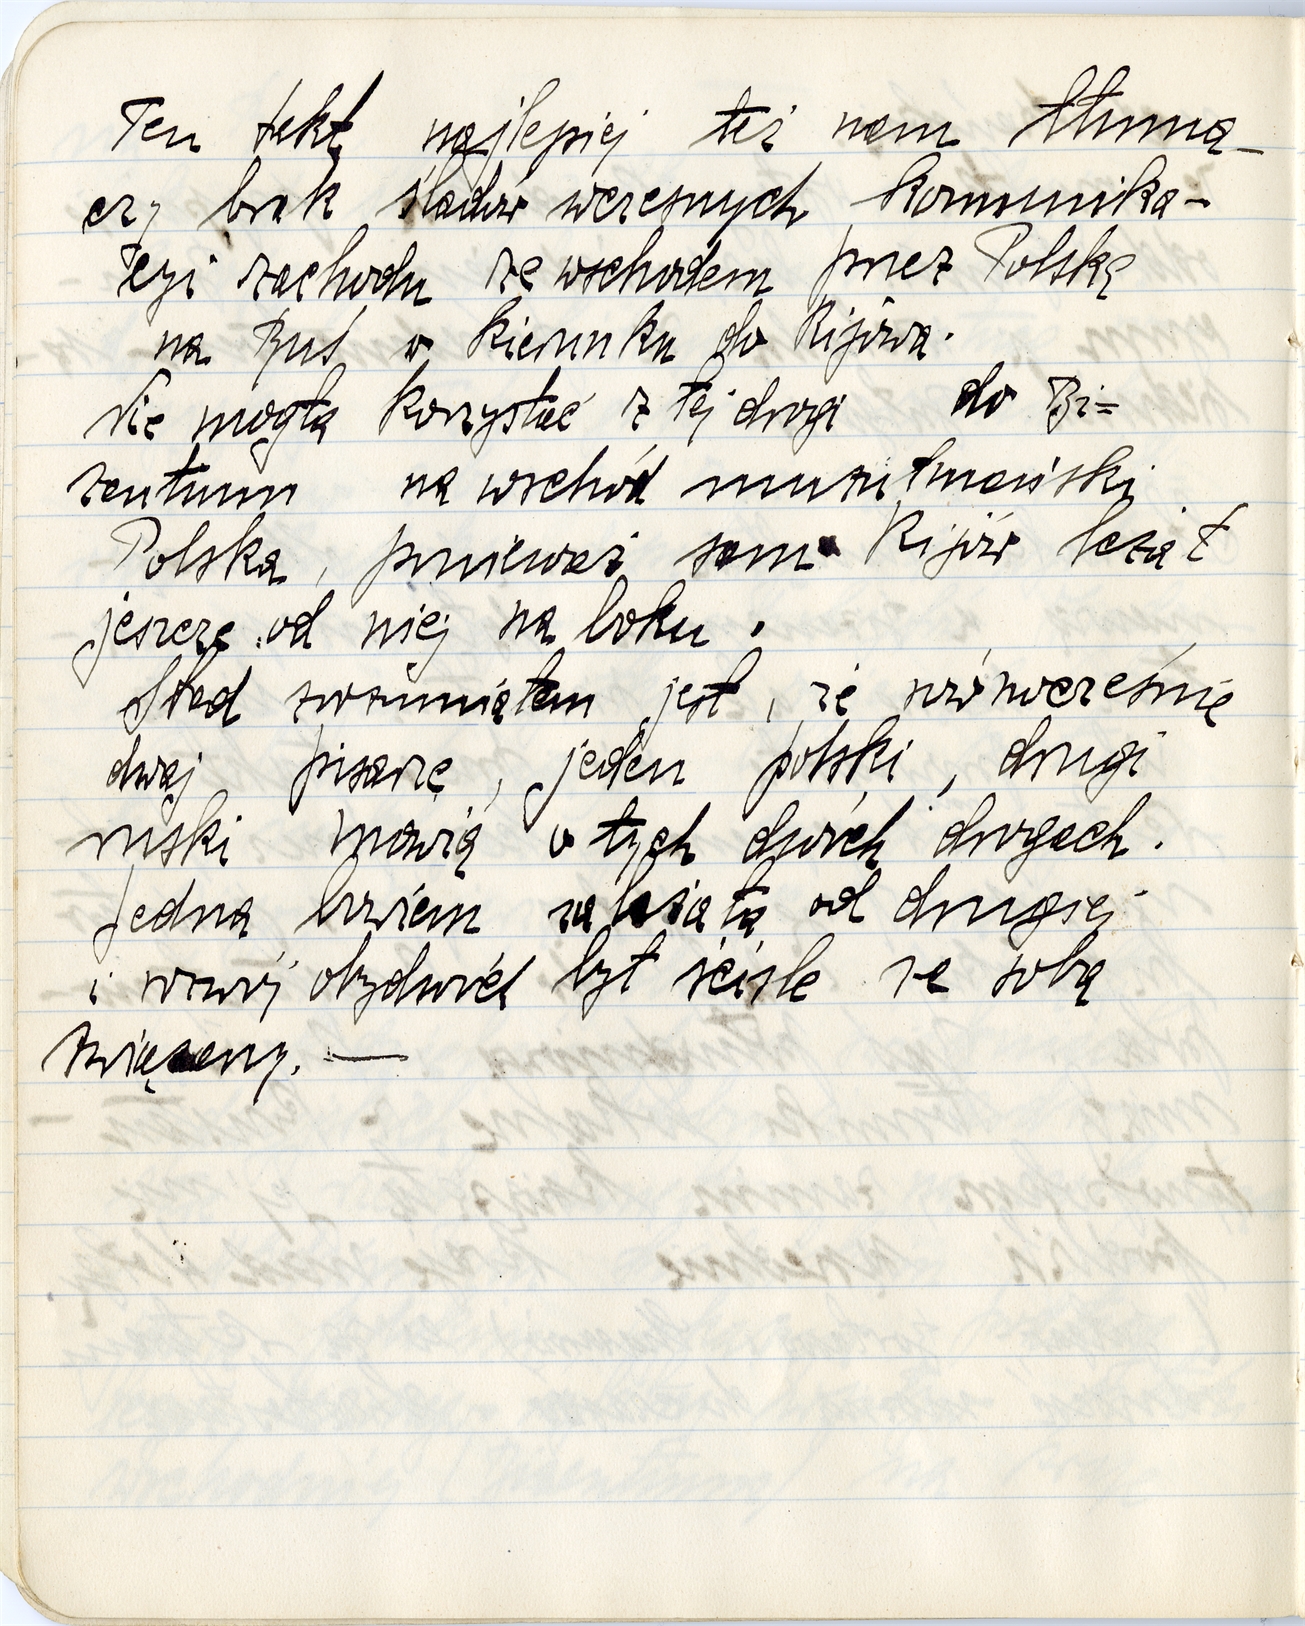 Ten fakt najlepiej też nam tłuma-
czy brak śladów wczesnych komunika-
cyi zachodu ze wschodem przez Polskę
na Ruś w kierunku do Kijowa.
Nie mogła korzystać z tej drogi do Bi=
zantium na wschód muzułmański
Polska, ponieważ sam Kijów leżał
jeszcze od niej na boku.
Stąd zrozumiałem jest, że równocześnie
dwaj pisarze, jeden polski, drugi
ruski mówią o tych dwóch drogach.
Jedna bowiem zależała od drugiej
i rozwój obydwóch był ściśle ze sobą
związany. —